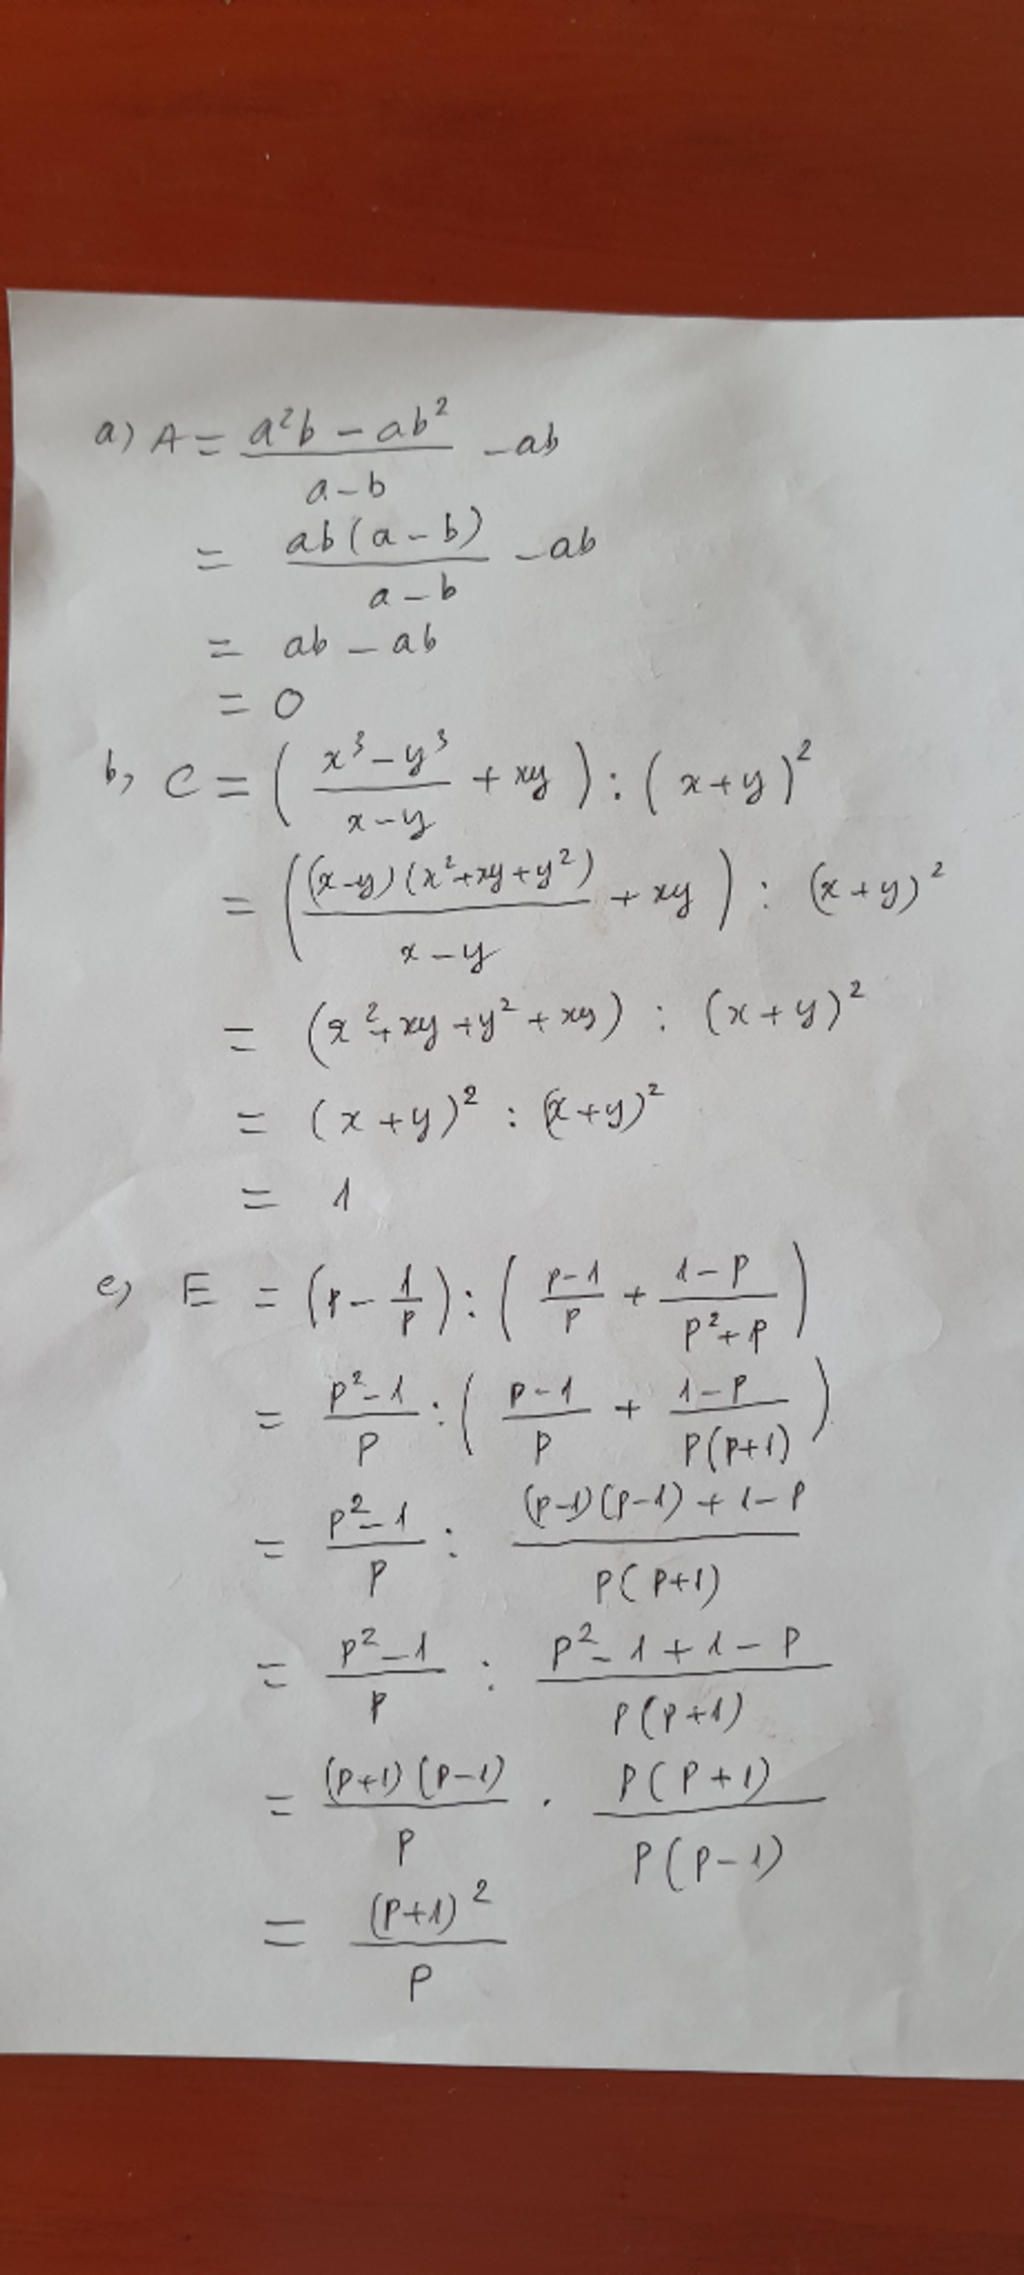 a) A = (a²b - ab²)/(a - b) - ab
= ab(a - b)/(a - b) - ab
= ab - ab
= 0
b, C = ((x³ - y³)/(x - y) + xy) : (x + y)²
= ((x - y)(x² + xy + y²)/(x - y) + xy) : (x + y)²
= (x² + xy + y² + xy) : (x + y)²
= (x + y)² : (x + y)²
= 1
e, E = (p - 1/p) : ((p - 1)/p + (1 - p)/(p² + p))
= (p² - 1)/p : ((p - 1)/p + (1 - p)/(p(p + 1)))
= (p² - 1)/p : ((p - 1)(p - 1) + 1 - p)/(p(p + 1))
= (p² - 1)/p : (p² - 1 + 1 - p)/(p(p + 1))
= (p + 1)(p - 1)/p . p(p + 1)/(p(p - 1))
= (p + 1)²/p